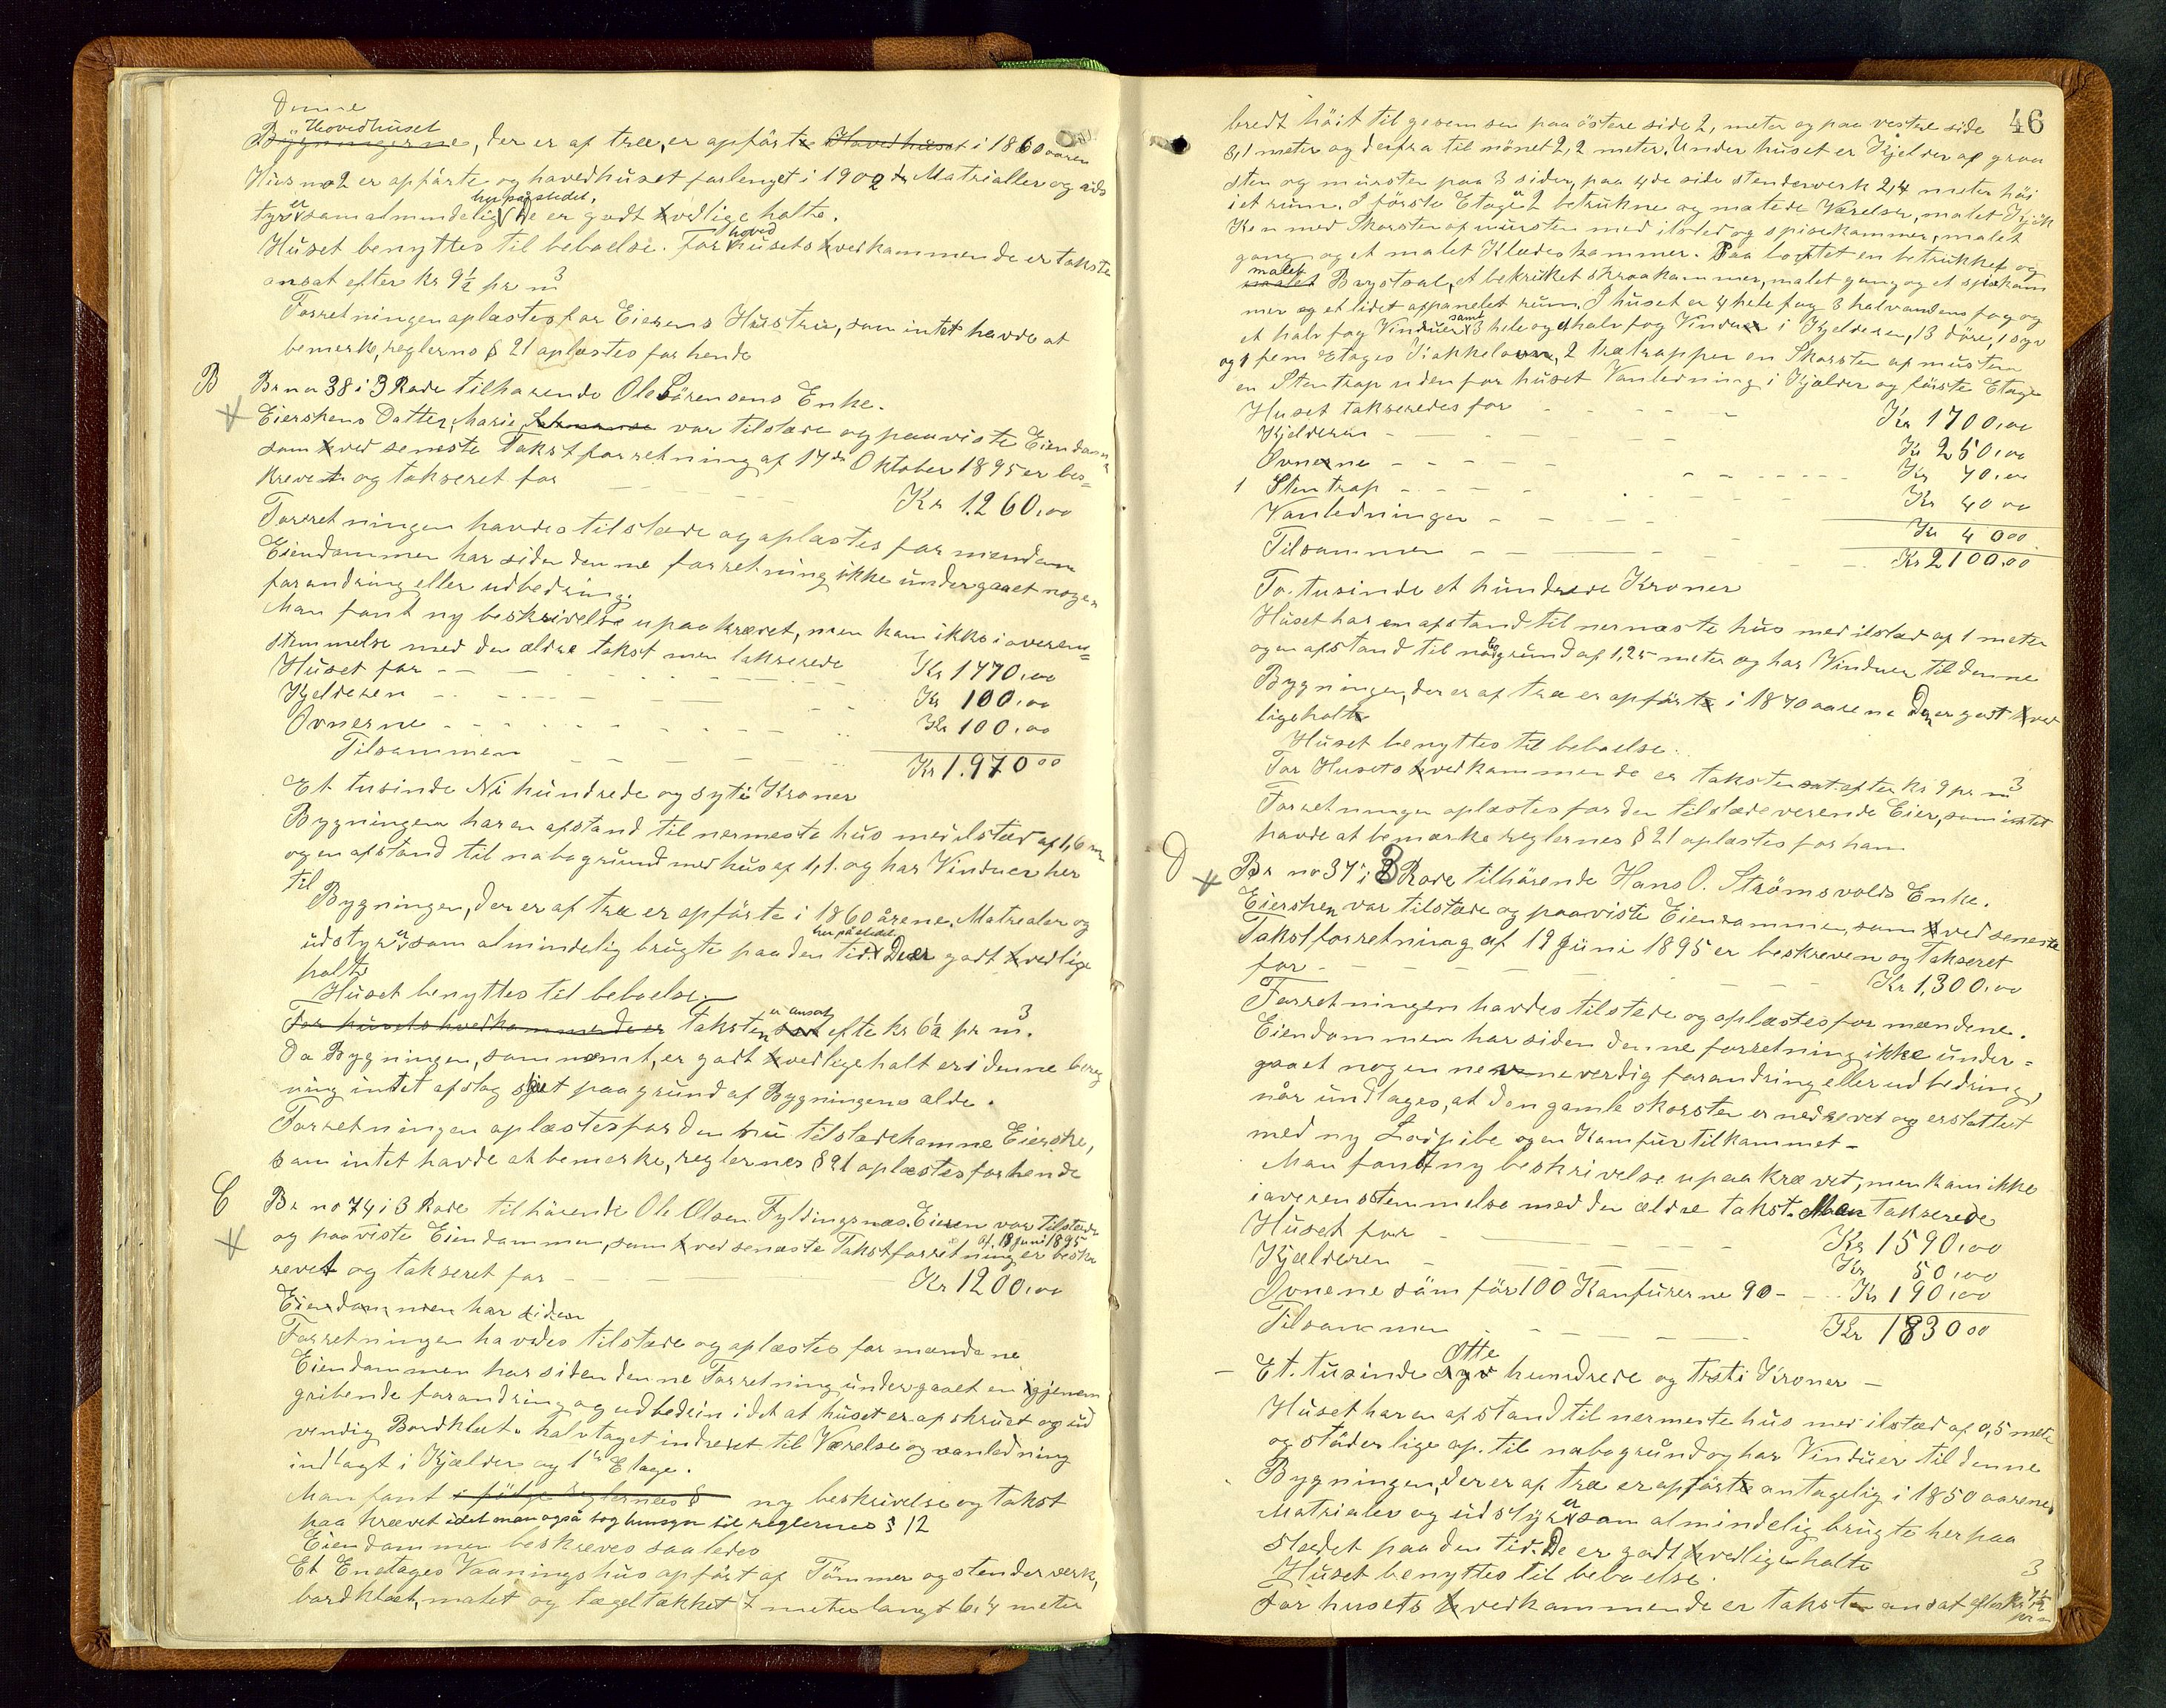 Denne
Hovedhuset
Bygningerne, der er af træ, er opförte Hovedhuset i 1860 aaren
Hus no 2 er opförte og hovedhuset forlenget i 1902 de Matrialler og uds
tyr er som almindelig her på stedet. De er godt vedlige holte.
Huset benyttes til beboelse. For hoved husets vedkommende er takste
ansat efter kr 9½ pr m3
Forretningen oplæstes for Eierens Hustru, som intet havde at
bemerke, reglernes § 21 oplæstes for hende
B Br no 38 i 3 Rode tilhørende Ole Sörensens Enke.
Eierskens Datter, Marie var tilstæde og paaviste Eiendom
som ved seneste Takstforretning af 17de Oktober 1895 er bes=
krevet og takseret for Kr 1.260,00
Forretningen havdes tilstæde og oplæstes for mændene
Eiendommen har siden denne forretning ikke undergaaet nogen
forandring eller udbedring.
Man fant ny beskrivelse upaakrævet, men kom ikke i overens=
stemmelse med den ældre takst men takserede
Huset for Kr 1770,00
Kjelderen Kr 100,00
Ovnerne Kr 100,00
Tilsammen Kr 1.970 00
Et tusinde Ni hundrede og syti Kroner
Bygningen har en afstand til nermeste hus med ilsted af 1,6 m
og en afstand til nabogrund med hus af 1,1. og har Vinduer her
til
Bygningen, der er af træ er opförte i 1860 årene. Matrealer og
udstyr er som almindelig brugte her på stedet paa den tid. De er godt vedlige
holte
Huset benyttes til beboelse.
For husets vedkommende er Taksten er ansat efte kr 6½ pr m3.
Da Bygningen, som nemt, er godt vedligeholt er i denne bereg
ning intet afslag sket paa grund af Bygningens alde.
Forretningen oplæstes for den nu tilstædekomne Eierske,
som intet havde at bemerke, reglernes § 21 oplæstes for hende
C Br no 74 i 3 Rode tilhörende Ole Olsen Fyldingsnæs. Eieren var tilstæde
og paaviste Eiendommen, som ved seneste Takstforretning af 18 juni 1895 er besk
revet og takseret for Kr 1200,00
Eiendommen har siden
Forretningen havdes tilstæde og oplæstes for mændene
Eiendommen har siden denne Forretning undergaaet en igjenem
gribende forandring og udbedrin idet at huset er opskruet og ud
vendig Bordklæt. halvtaget indredet til Værelse og vanledning
indlagt i Kjælder og 1ste Etage.
Man fant i følge reglernes § ny beskrivelse og takst
paa krævet idet man også tog hensyn til reglernes § 12
Eiendommen beskreves saaledes
Et Enetages Vaaningshus opfört af Tömmer og stenderverk,
bordklæt, malet og tægeltækket 7 meter langt 6,4 meter
46
bredt höit til gesemsen paa östere side 2, meter og paa vestre side
3,1 meter og derfra til mönet 2,2 meter. Under huset er Kjelder af graa
sten og mursten paa 3 sider, paa 4de side stenderverk 2,4 meter höi
i et rum. I förste Etage er 2 betrukne og malede Værelser, malet Kjök
ken med Skorsten af mursten med ilsted og spisekammer, malet
gang og et malet Klædeskammer. Paa loftet en betrukket og
malet Brystsal, et bekruket skraakammer, malet gang og et spisekam
mer og et lidet oppanelet rum. I huset er 4 hele fag 3 halvandens fag og
et halv fag Vinduer samt 3 hele og 1 halv fag Vinduer i Kjelderen, 13 döre, 1 syv
og 1 fem Etages Kakkelovn, 2 trætrapper en Skorsten af mursten
en Stentrap uden for huset Vanledning i Kjælder og förste Etage
Huset takseredes for Kr 1700,00
Kjelderen Kr 250,00
Ovnene Kr 70,00
1 Sten trap Kr 40 00
Vanledningen Kr 40 00
Tilsammen Kr 2100,00
To tusinde et hundrede Kroner
Huset har en afstand til nermeste hus med ilsted af 1 meter
og en afstand til nabogrund af 1,25 meter og har Vinduer til denne
Bygningen, der er af træ er opförte i 1870 aarene Den er got ved
ligeholte
Huset benyttes til beboelse.
For Husets vedkommende er taksten sat efter kr 9 pr m3
Forretningen oplæstes for den tilstædeverende Eier, som intet
havde at bemærke reglernes § 21 oplæstes for ham
D Br no 37 i 3 Rode tilhörende Hans O. Strömsvolds Enke.
Eiersken var tilstæde og paaviste Eiendommen, som ved seneste
Takstforretning af 19 Juni 1895 er beskreven og Takseret
for Kr 1,300,00
Forretningen havdes tilstede og oplæstes for mændene.
Eiendommen har siden denne forretning ikke under=
gaaet nogen neverdig forandring eller udbedring,
når undtages, at den gamle skorsten er nedrevet og erstattet
med ny og en Komfur tilkommet -
Man fandt ny beskrivelse upaakrævet, men kom ikke
i overensstemmelse med den ældre takst. Man takserede
Huset for Kr 1590,00
Kjælderen Kr 50,00
Ovnene söm för 100 Komfurerne 90 - Kr 190,00
Tilsammen Kr 1830 00
- Et. tusinde otte hundrede og treti Kroner -
Huset har en afstand til nermeste hus med ilsted af 0,5 mete
og stöder lige op. til nabogrund og har Vinduer til denne
Bygningen, der er af træ er opförte antagelig i 1850 aarene
Matrialer og udstyr er som almindelig brugte her paa
stedet paa den tid. De er godt vedlige holte
Huset benyttes til beboelse.
For husets vedkommende er taksten ansat efter kr 7½ pr m3